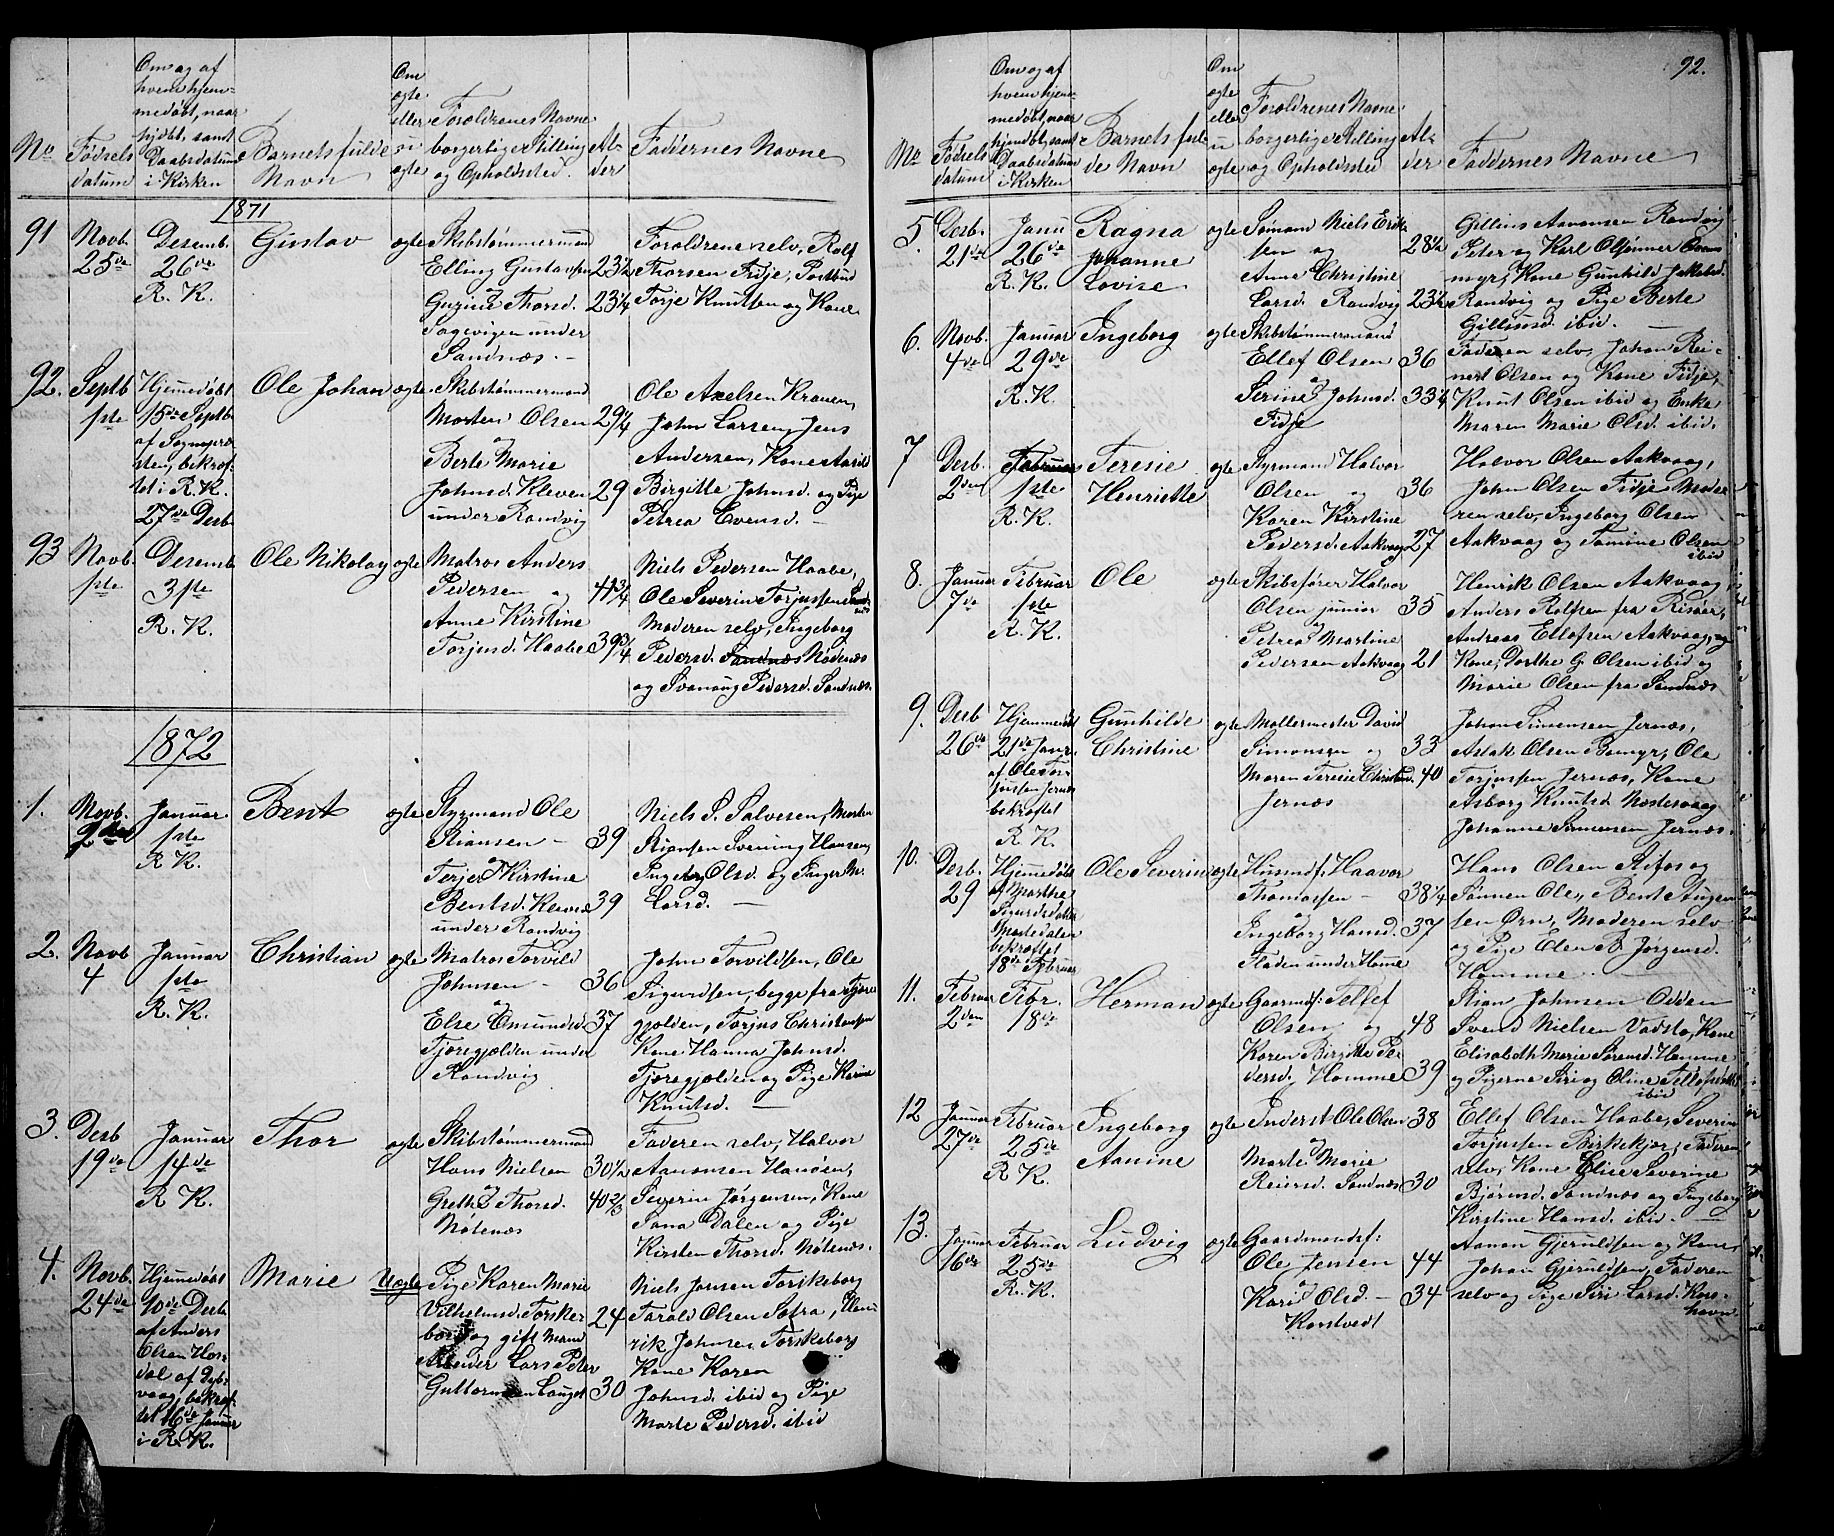 No
Fødsels
datum
Om og af
hvem hjem-
medøbt, naar
hjdbt. samt
Daabsdatum
i Kirken
Barnets fulde
Navn
Om
ægte
eller
u
ægte
Forældrenes Navne
borgerlige Stilling
og Opholdsted.
Al-
der
Faddernes Navne
1871
91
Novb.
25de
Desemb.
26de
R. K.
Gustav
ægte
Skibstømmermand
Elling Gustavsen
Gusine Thorsd.
Sagevigen under
Sandnæs.
23 1/4
Forældrene selv, Rolf
Thorsen Fidje,
Torje Knutsen og Kone
92.
Septb
1ste
Hjemmedøbt
15de Septb
af Sognepræ-
sten, bekræf-
tet i R. K.
27de Desb
Ole Johan
ægte
Skibstømmermand
Morten Olsen
og
Berte Marie
Johnsd. Kleven
under Randvig
29 1/4
29
Ole Axelsen Kranen,
John Larsen, Jens
Andersen, Kone Aasild
Birgitte Johnsd. og Pige
Petrea Evensd.
93
Novb.
1ste
Desemb
3ste
R. K.
Ole Nikolay
ægte
Matros Anders
Pedersen og
Anne Kirstine
Torjusd. Haabe
41 3/4
39 3/4
Niels Pedersen Haabe,
Ole Severin Torjussen
Moderen selv, Ingeborg
Pedersd. Sandnæs Nødenæs
og Svanaug Pedersd. Sandnæs.
1872
1.
Novb.
2den
Januar
1ste
R. K.
Bent
ægte
Styrmand Ole
Stiansen
og
Terjer Kirstine
Bentsd. Kleven
under Randvig
39
39
Niels S. Salvesen, Morten
Stiansen Svenning Hansen,
Ingeborg Olsd. og Inger M.
Larsd.
2.
Novb
4
Januar
1ste
R. K.
Christian
ægte
Matros Torvild
Johnsen
og
Else Omundsd.
Tjøregjølden under
Randvig
36
37
John Torvildsen, Ole
Sigurdsen, begge fra Tjøre
gjølden, Torjus Christensen
Kone Hanna Johnsd.
Tjøregjølden og Pige Karine
Knutsd.
3.
Desb
19de
Januar
14de
R. K.
Thor
ægte
Skibstømmermand
Hans Nielsen
og
Grethe Thorsd.
Nøtenæs
30 1/2
40 2/3
Faderen selv, Halvor
Aanonsen Hanøen,
Severin Jørgensen, Kone
Sana Dalen og Pige
Kirsten Thorsd. Nøtenæs.
4.
Novb.
24de
Hjemmedøbt
10de Desb.
af Anders
Olsen Hos-
dal af Dyb-
vaag, bekræf-
tet 16de Januar
i R. K.
Marie
Uægte
Pige Karen Marie
Vilhelmsd. Torsker
borg og gift Mand
Arbeider Lars Peter
Guttormsen Lauget
24
30
Niels Jensen Torskeborg
Tarald Olsen Satra, Hen-
rik Johnsen Torskeborg
Kone Karen
Johnsd. ibid og Pige
Marte Pedersd. ibid
92.
No
Fødsels
datum
Om og af
hvem hjem-
medøbt, naar
hjemdøbt, samt
Daabsdatum
i Kirken
Barnets ful-
de Navn
Om
ægte
eller
u
ægte
Forældrenes Navne
borgerlige Stilling
og Opholdsted
Al-
der
Faddernes Navne
5.
Desb.
21de
Janu
26de
R. K.
Ragna
Johanne
Lovise
ægte
Sømand Niels Erik
sen og
Anne Christine
Larsd. Randvig
28 1/2
23 1/2
Gillius Aanonsen Randvig
Peter og Karl
myr, Kone Gunhild Jakobsd.
Randvig og Pige Berte
Gilliusd. ibid.
6.
Novb.
4de
Januar
29de
R. K.
Ingeborg
ægte
Skibstømmermand
Ellef Olsen
og
Serine Johnsd.
Fidje
36
33 1/4
Faderen selv, Johan Rei-
nert Olsen og Kone Fidje,
Knut Olsen ibid og Enke
Maren Marie Olsd. ibid.
7
Desb.
2den
Februar
1ste
R. K.
Teresie
Henriette
ægte
Styrmand Halvor
Olsen og
Karen Kirstine
Pedersd. Aakvaag
36
27
Halvor Olsen Aakvaag,
John Olsen Fidje, Mode
ren selv, Ingeborg Olsen
Aakvaag og Tomine Olsen
ibid
8.
Januar
7de
Februar
1ste
R. K.
Ole
ægte
Skibsfører Halvor
Olsen junior
og
Petrea Martine
Pedersen Aakvaag
35
21
Henrik Olsen Aakvaag,
Anders Rolfsen fra Risøer,
Andreas Ellefsen Aakvaag, og
Kone, Dorthe G. Olsen ibid og
Marie Olsen fra Sandnæs
9.
Desb
26de
Hjemmedøbt
21de Janr.
af Ole Tor-
jussen Jernæs
bekræftet
R. K.
Gunhilde
Christine
ægte
Møllermester David
Simonsen og
Maren Teresie Christensd.
Jernæs
33
40
Johan Simensen Jernæs,
Aslak Olsen Bømyr, Ole
Torjussen Jernæs, Kone
Asborg Knutsd. Nastesvaag
Johanne Simensen Jernæs.
10.
Desb.
29
Hjemmedøbt
af Marthe
Sigurdsdatter
Mostedalen
bekræftet
18de Februar
Ole Severin
ægte
Husmdf: Haavor
Thomassen
og
Ingeborg Hansd.
Fladen under Homme
38 1/4
37
Hans Olsen Aifos og
Sønnen Ole, Bent Augen
sen Ørn, Moderen selv
og Pige Elen B. Jørgensd.
Homme
11.
Februar
2den
Febr.
18de
Herman
ægte
Gaardmf: Tellef
Olsen og
Karen Birgitte Pe
dersd. Homme
48
39
Stian Johnsen Odden
Svend Nielsen Vadsto, Kone
Elisabeth Marie Sørensd. Homme
og Pigerne Siri og Oline Tellefsdøttre
ibid
12
Januar
27de
Februar
25de
R. K.
Ingeborg
Aanine
ægte
Inderst Ole Olsen
og
Marte Marie
Reiersd. Sandnæs
38
30
Ellef Olsen Haabe, Severin
Torjussen Birkekjær, Faderen
selv, Kone Elise Severine
Bjørnsd. Sandnæs og Ingeborg
Kirstine Hansd. ibid.
13.
Januar
16de
Februar
25de
R. K.
Ludvig
ægte
Gaardmandsf:
Ole Jensen
og
Kari Olsd.
Karstvedt
44
34
Aanon Gjeruldsen og Kone,
Johan Gjeruldsen, Faderen
selv og Pige Siri Larsd. Kors-
havn